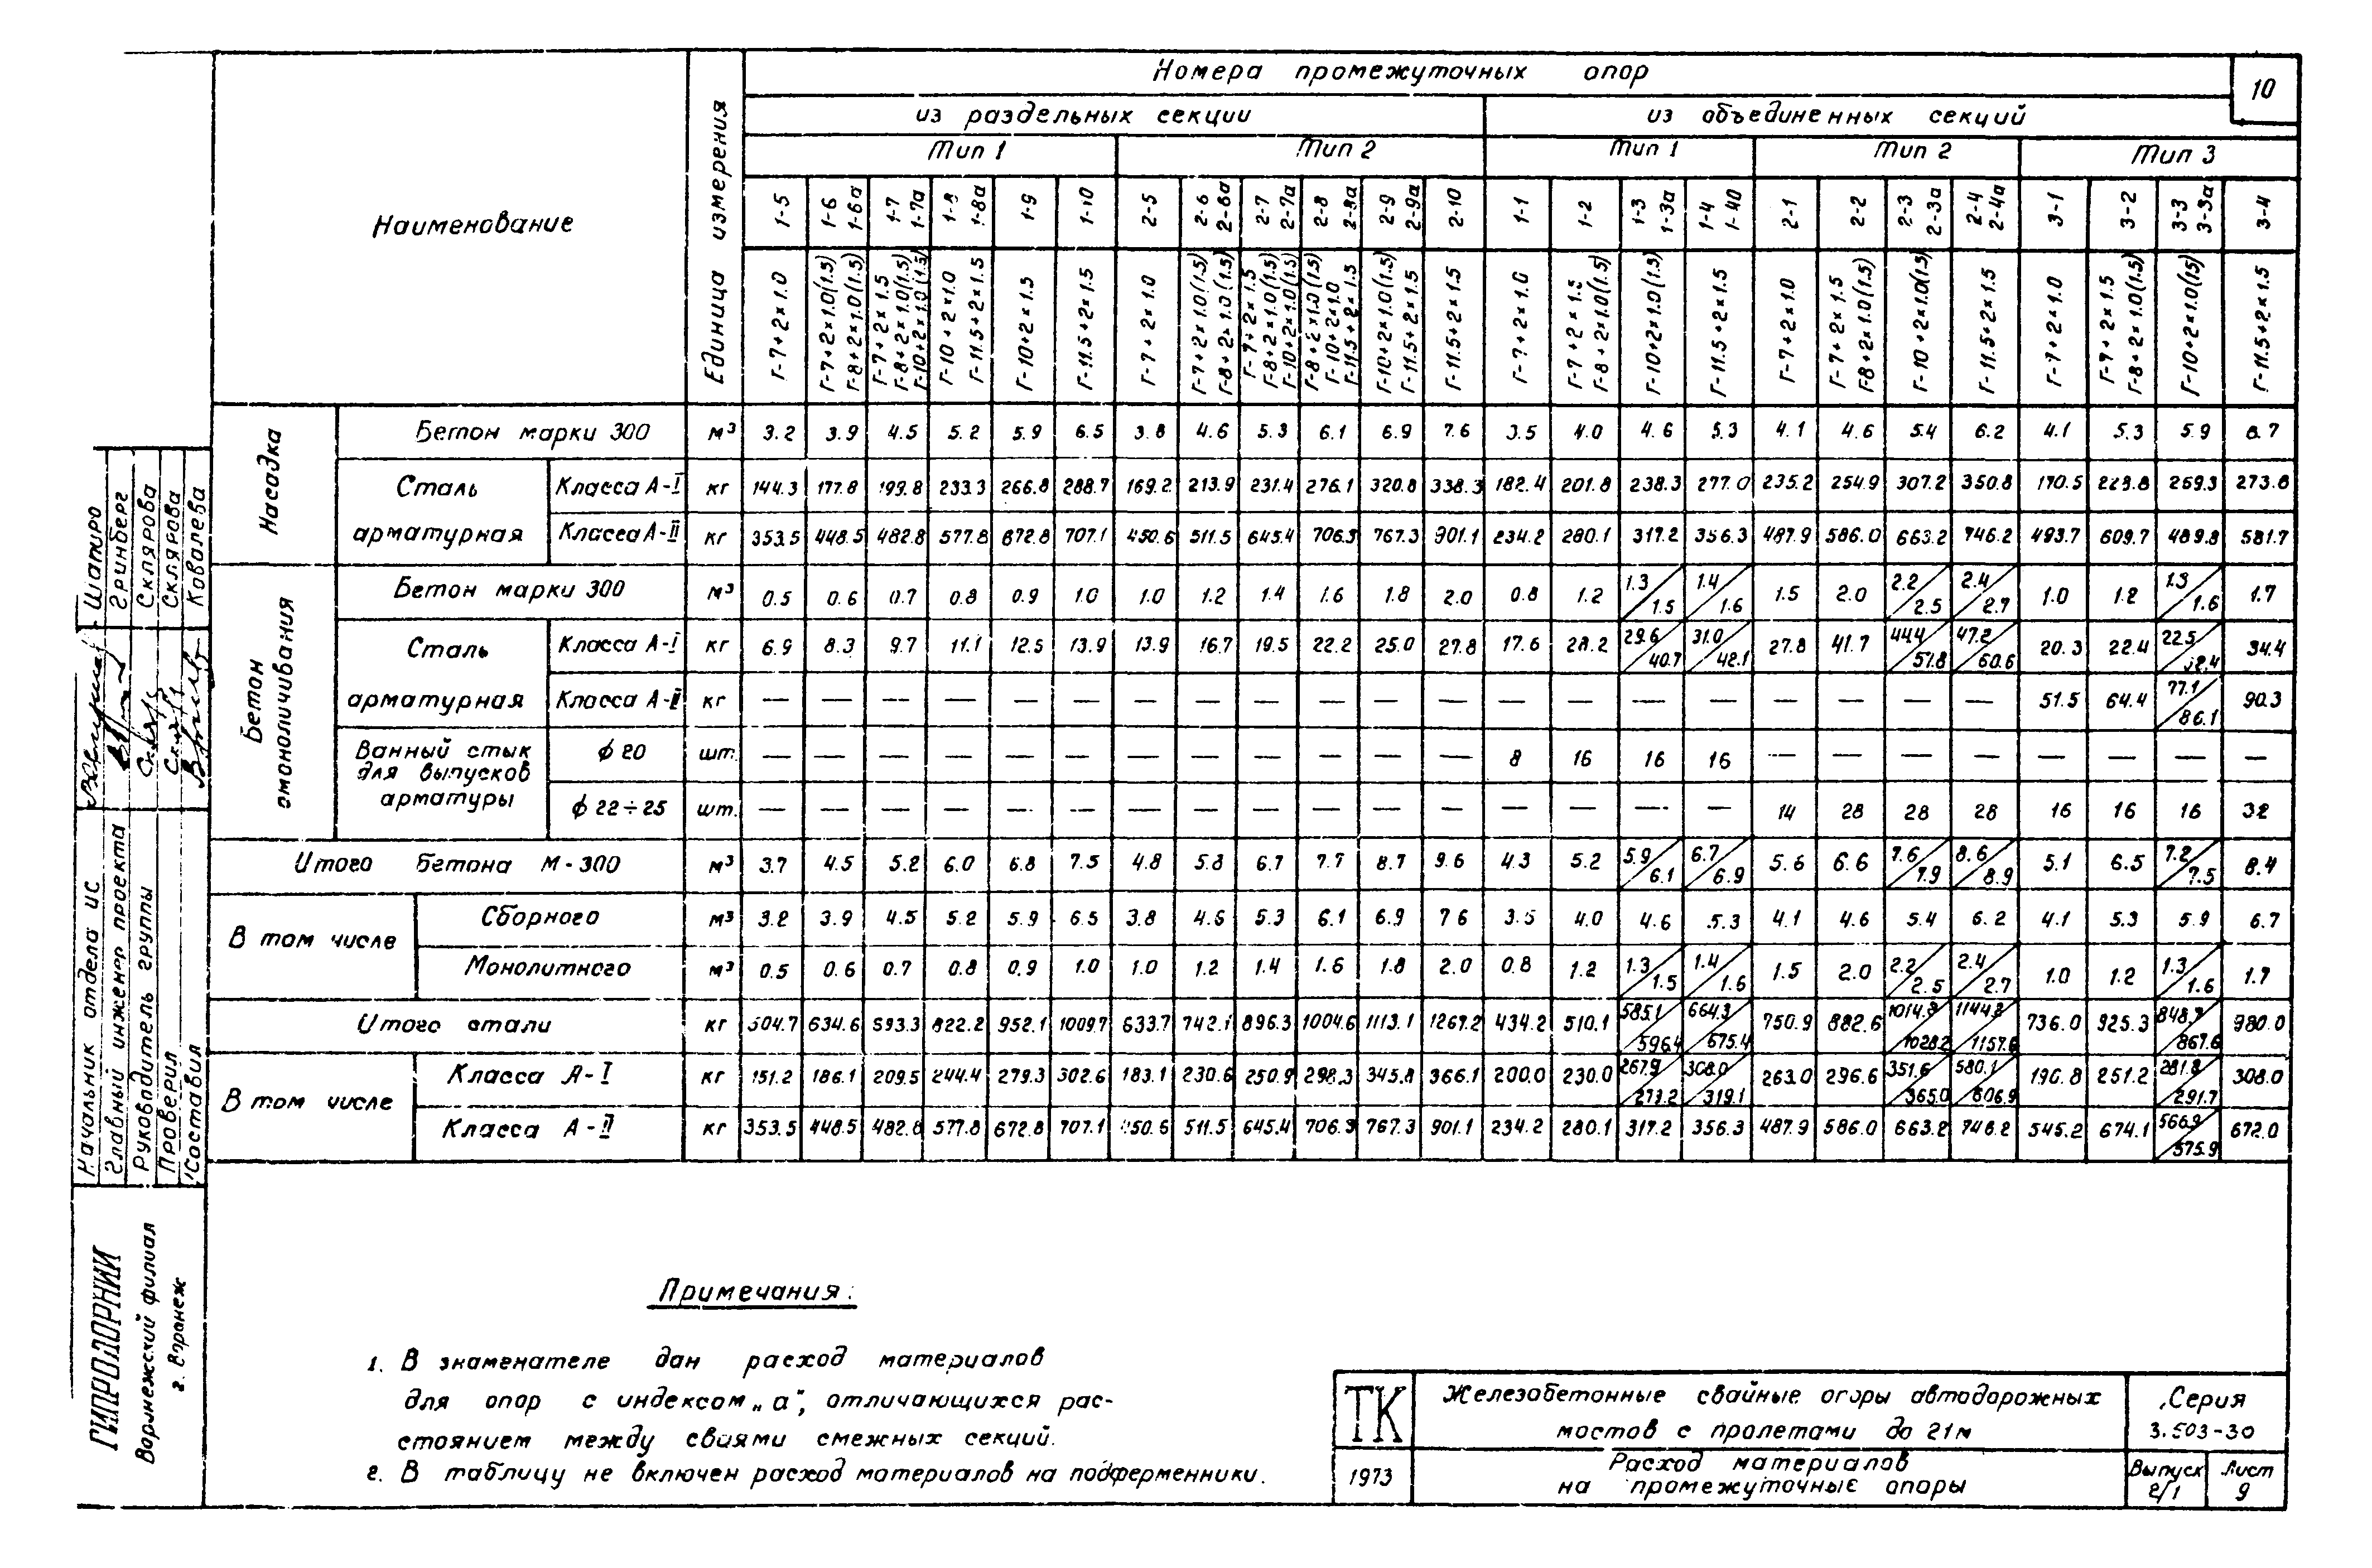 Номера промежуточных опор
10
из раздельных секции
из объединенных секций
Тип 1 Тип 2 Тип 1 Тип 2 Тип 3
Наименование
Единица измерения
1-5 1-6 1-6а 1-7 1-7а 1-8 1-8а 1-9 1-10 2-5 2-6 2-6а 2-7 2-7а 2-8 2-8а 2-9 2-9а 2-10 1-1 1-2 1-3 1-3а 1-4 1-40 2-1 2-2 2-3 2-3а 2-4 2-4а 3-1 3-2 3-3 3-3а 3-4
Г-7+2×1.0
Г-7+2×1.0(1.5)
Г-8+2×1.0(1.5)
Г-7+2×1.5
Г-8+2×1.0(1.5)
Г-10+2×1.0(1.5)
Г-10+2×1.0
Г-11.5+2×1.5
Г-10+2×1.5
Г-11.5+2×1.5
Г-7+2×1.0
Г-7+2×1.0(1.5)
Г-8+2×1.0(1.5)
Г-7+2×1.5
Г-8+2×1.0(1.5)
Г-10+2×1.0(1.5)
Г-8+2×1.0(1.5)
Г-10+2×1.0
Г-11.5+2×1.5
Г-10+2×1.0(1.5)
Г-11.5+2×1.5
Г-11.5+2×1.5
Г-7+2×1.0
Г-7+2×1.5
Г-8+2×1.0(1.5)
Г-10+2×1.0(1.5)
Г-11.5+2×1.5
Г-7+2×1.0
Г-7+2×1.5
Г-8+2×1.0(1.5)
Г-10+2×1.0(1.5)
Г-11.5+2×1.5
Г-7+2×1.0
Г-7+2×1.5
Г-8+2×1.0(1.5)
Г-10+2×1.0(15)
Г-11.5+2×1.5
Насадка
Бетон марки 300 м³ 3.2 3.9 4.5 5.2 5.9 6.5 3.8 4.6 5.3 6.1 6.9 7.6 3.5 4.0 4.6 5.3 4.1 4.6 5.4 6.2 4.1 5.3 5.9 6.7
Сталь арматурная
Класса А-I кг 144.3 177.8 199.8 233.3 266.8 288.7 169.2 213.9 231.4 276.1 320.8 338.3 182.4 201.8 238.3 277.0 235.2 254.9 307.2 350.8 170.5 228.8 259.3 273.6
Класса А-II кг 353.5 448.5 482.8 577.8 672.8 707.1 450.6 511.5 645.4 706.3 767.3 901.1 234.2 280.1 317.2 356.3 487.9 586.0 663.2 746.2 493.7 609.7 489.8 581.7
Бетон омоноличивания
Бетон марки 300 м³ 0.5 0.6 0.7 0.8 0.9 1.0 1.0 1.2 1.4 1.6 1.8 2.0 0.8 1.2 1.3/1.5 1.4/1.6 1.5 2.0 2.2/2.5 2.4/2.7 1.0 1.2 1.3/1.6 1.7
Сталь арматурная
Класса А-I кг 6.9 8.3 9.7 11.1 12.5 13.9 13.9 16.7 19.5 22.2 25.0 27.8 17.6 28.2 29.6/40.7 31.0/42.1 27.8 41.7 44.4/57.8 47.2/60.6 20.3 22.4 22.5/32.4 34.4
Класса А-II кг — — — — — — — — — — — — — — — — — — — — 51.5 64.4 77.1/86.1 90.3
Ванный стык для выпусков арматуры
ф 20 шт. — — — — — — — — — — — — 8 16 16 16 — — — — — — — —
ф 22÷25 шт. — — — — — — — — — — — — — — — — 14 28 28 28 16 16 16 32
Итого бетона М-300 м³ 3.7 4.5 5.2 6.0 6.8 7.5 4.8 5.8 6.7 7.7 8.7 9.6 4.3 5.2 5.9/6.1 6.7/6.9 5.6 6.6 7.6/7.9 8.6/8.9 5.1 6.5 7.2/7.5 8.4
В том числе
Сборного м³ 3.2 3.9 4.5 5.2 5.9 6.5 3.8 4.6 5.3 6.1 6.9 7 6 3.5 4.0 4.6 5.3 4.1 4.6 5.4 6.2 4.1 5.3 5.9 6.7
Монолитного м³ 0.5 0.6 0.7 0.8 0.9 1.0 1.0 1.2 1.4 1.6 1.8 2.0 0.8 1.2 1.3/1.5 1.4/1.6 1.5 2.0 2.2/2.5 2.4/2.7 1.0 1.2 1.3/1.6 1.7
Итого стали кг 504.7 634.6 593.3 822.2 952.1 1009.7 633.7 742.1 896.3 1004.6 1113.1 1267.2 434.2 510.1 585.1/596.4 664.3/675.4 750.9 882.6 1014.8/1028.2 1144.2/1157.6 736.0 925.3 848.7/867.6 980.0
В том числе
Класса А-I кг 151.2 186.1 209.5 244.4 279.3 302.6 183.1 230.6 250.9 298.3 345.8 366.1 200.0 230.0 267.9/273.2 308.0/319.1 263.0 296.6 351.6/365.0 580.1/606.9 190.8 251.2 281.8/291.7 308.0
Класса А-II кг 353.5 448.5 482.8 577.8 672.8 707.1 450.6 511.5 645.4 706.3 767.3 901.1 234.2 280.1 317.2 356.3 487.9 586.0 663.2 746.2 545.2 674.1 566.9/575.9 672.0
Примечания:
1. В знаменателе дан расход материалов
для опор с индексом „а", отличающихся рас-
стоянием между сваями смежных секций.
2. В таблицу не включен расход материалов на подферменники.
ТК
1973
Железобетонные свайные опоры автодорожных
мостов с пролетами до 21м
Расход материалов
на промежуточные опоры
Серия
3.503-30
Выпуск
2/1
Лист
9
Начальник отдела ИС Шапиро
Главный инженер проекта Гринберг
Руководитель группы Склярова
Проверил Склярова
Составил Ковалева
ГИПРОДОРНИИ
Воронежский филиал
г. Воронеж